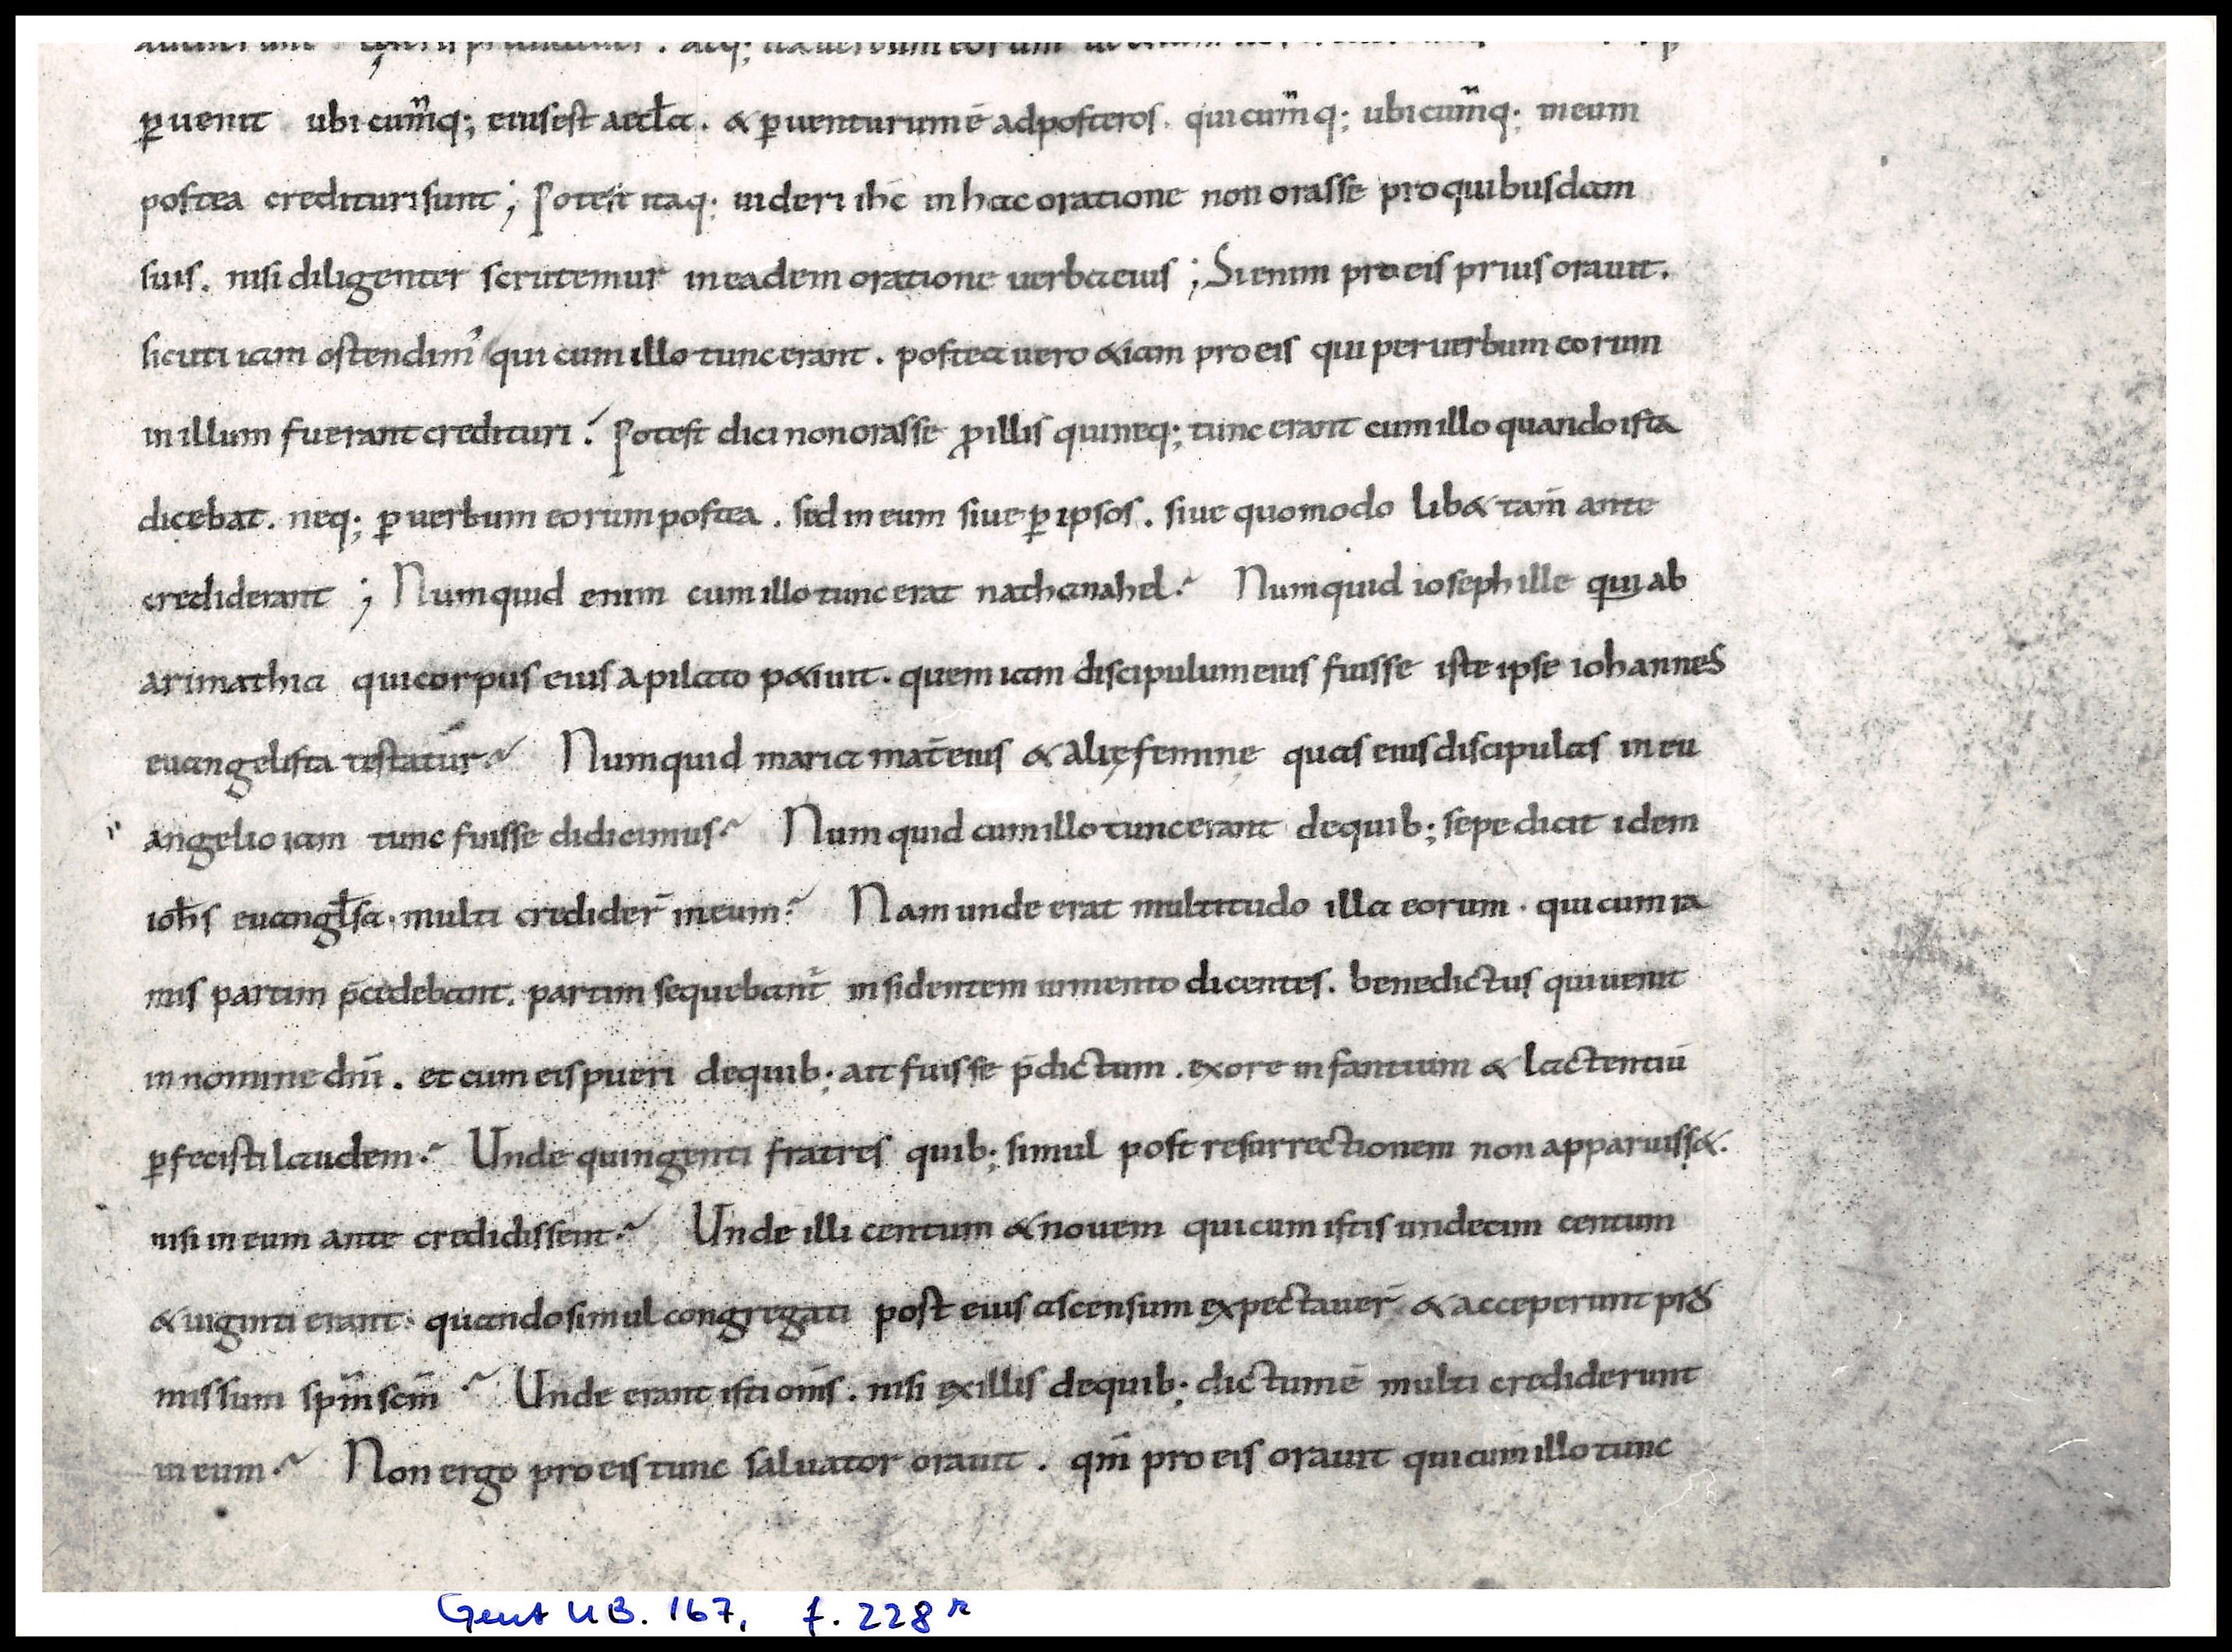 atq; ita uerbum eorum
ꝑuenit ubicum̅q; eius est aeccl̅a. & ꝑuenturum ē ad posteros. quicum̅q; ubicum̅q; in eum
postea credituri sunt; Potest itaq; uideri ihc̄ in hac oratione non orasse pro quibusdam
suis. nisi diligenter scrutemur in eadem oratione uerba eius; Si enim pro eis prius orauit.
sicuti iam ostendim᾿ qui cum illo tunc erant. postea uero &iam pro eis qui per uerbum eorum
in illum fuerant credituri. Potest dici non orasse ꝓ illis qui neq; tunc erant cum illo quando ista
dicebat. neq; ꝑ uerbum eorum postea. sed in eum siue ꝑ ipsos. siue quomodo lib& tam̄ ante
crediderant; Numquid enim cum illo tunc erat nathanahel? Numquid ioseph ille qui ab
arimathia qui corpus eius a pilato p&iuit. quem iam discipulum eius fuisse iste ipse iohannes
euangelista testatur? Numquid maria mat̄ eius & alię femine quas eius discipulas in eu
angelio iam tunc fuisse didicimus? Numquid cum illo tunc erant de quib; sepe dicit idem
ioh̄s euangl̄sa. multi credider̄ in eum? Nam unde erat multitudo illa eorum. qui cum ra
mis partim p̄cedebant. partim sequebant̄ insidentem iumento dicentes. benedictus qui uenit
in nomine dn̄i. et cum eis pueri de quib; ait fuisse p̄dictum. ex ore infantium & lactentiū
ꝑfecisti laudem? Unde quingenti fratres quib; simul post resurrectionem non apparuiss&.
nisi in eum ante credidissent? Unde illi centum & nouem qui cum istis undecim centum
& uiginti erant. quando simul congregati post eius ascensum expectauer̄ & acceperunt pro
missum spm̄ scm̄? Unde erant isti om̄s. nisi ex illis de quib; dictum ē multi crediderunt
in eum? Non ergo pro eis tunc saluator orauit. qm̄ pro eis orauit qui cum illo tunc
Gent UB. 167, f. 228r